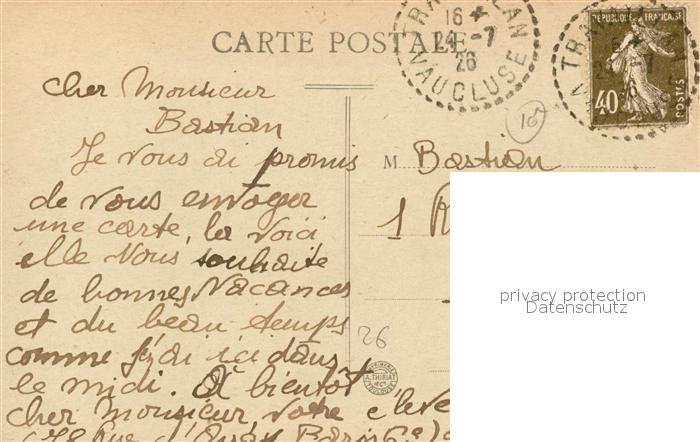 CARTE POSTALE
TRA LAN
16
24 -7
26
VAUCLUSE
REPUBLIQUE FRANÇAISE
40
POSTES
Cher Monsieur
Bastian
Je vous ai promis
de vous envoyer
une carte, la voici
elle vous souhaite
de bonnes vacances
et du beau temps
comme j'ai ici dans
le midi. A bientôt
cher Monsieur, votre élève
M Bastian
1 R
16
26
A. THIRIAT
& Cie
TOULOUSE
privacy protection
Datenschutz